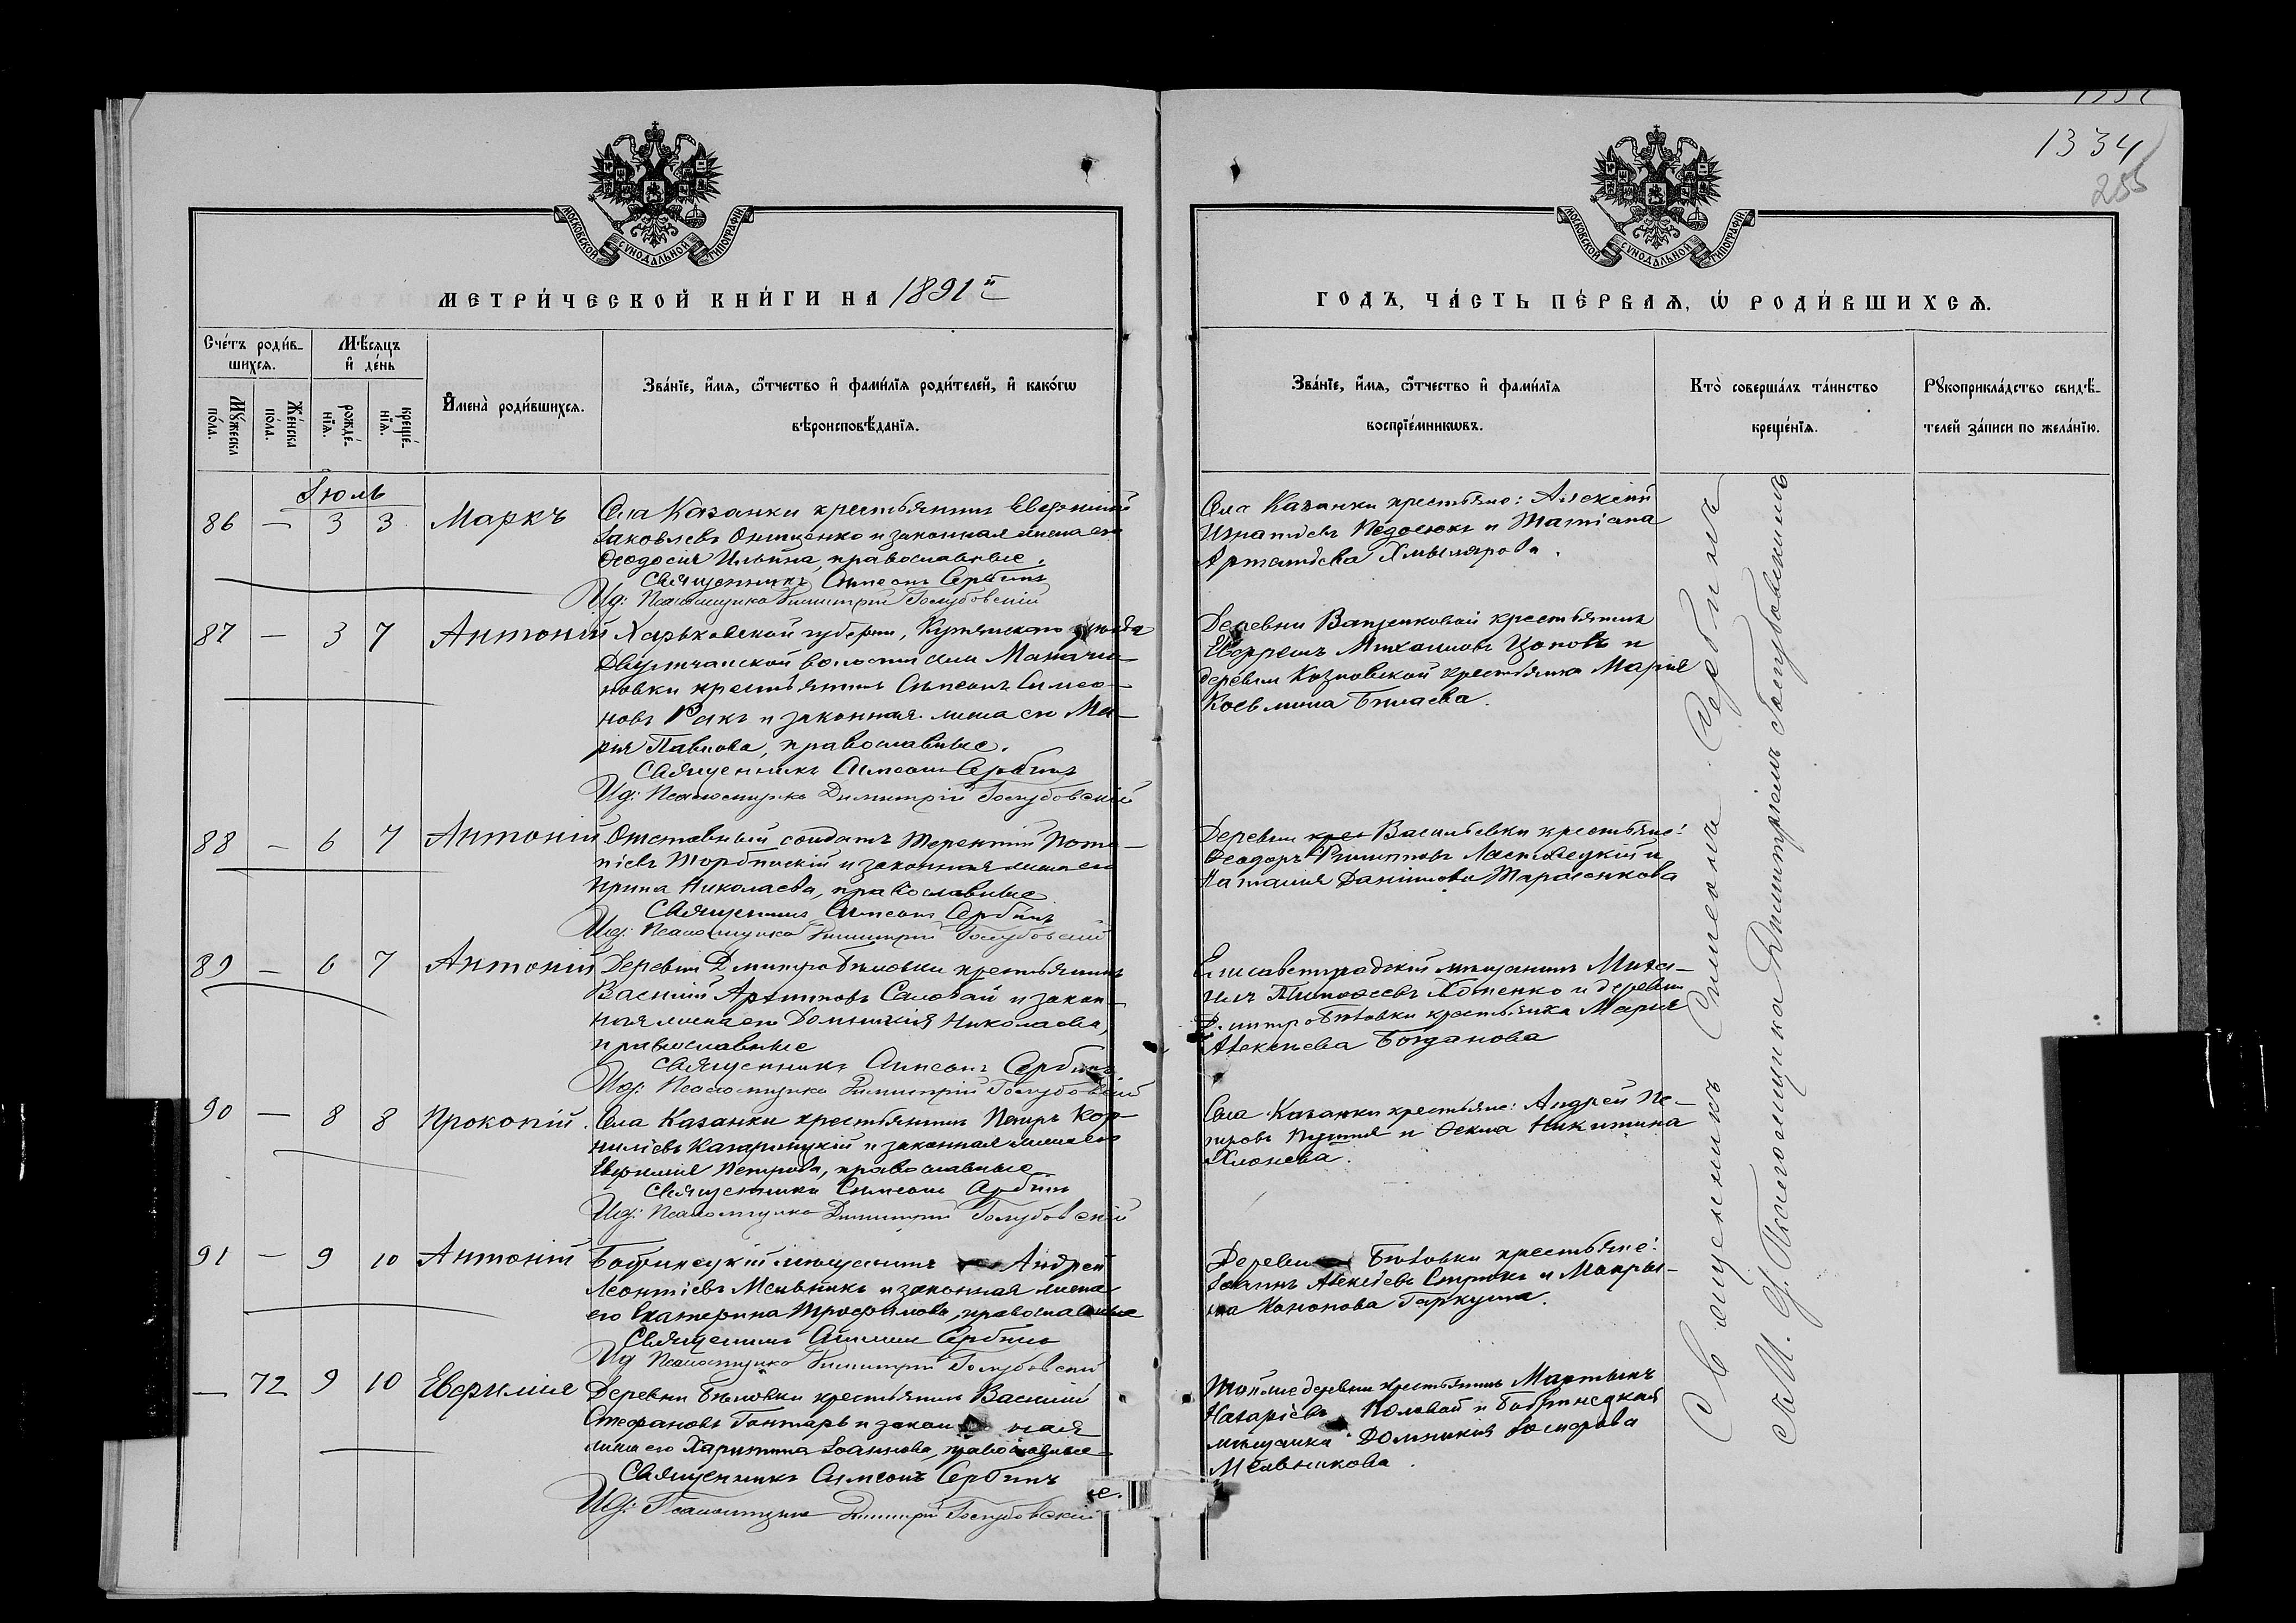 1334
255
МОСКОВСКОЙ СѴНОДАЛЬНОЙ ТИПОГРАФІИ
МОСКОВСКОЙ СѴНОДАЛЬНОЙ ТИПОГРАФІИ
МЕТРИ́ЧЕСКОЙ КНИ́ГИ НА 1891й
ГОДЪ, ЧА́СТЬ ПЕ́РВАѦ, Ѡ҆ РОДИ́ВШИХСѦ.
Сче́тъ роди́в-
шихсѧ.
Мѣ́сѧцъ
и҆ де́нь
Мꙋ́жеска
по́ла.
Же́нска
по́ла.
рожде́-
нїѧ.
креще́-
нїѧ.
И҆мена̀ роди́вшихсѧ.
Зва́нїе, и҆́мѧ, ѻ҆́тчество и҆ фами́лїѧ роди́телей, и҆ како́гѡ
вѣроисповѣ́данїѧ.
Зва́нїе, и҆́мѧ, ѻ҆́тчество и҆ фами́лїѧ
воспрїе́мникѡвъ.
Кто̀ соверша́лъ та́инство
креще́нїѧ.
Рꙋкоприкла́дство свидѣ́-
телей за́писи по жела́нїю.
Іюль
86 — 3 3 Маркъ Села Казанки крестьянинъ Евфимій
Іаковлевъ Онищенко и законная жена его
Ѳеодосія Ильина, православные.
Священникъ Симеонъ Сербинъ
Ид: Псаломщика Димитрій Голубовскій
Села Казанки крестьяне: Алексій
Игнатіевъ Недосюкъ и Татіана
Артемьева
87 — 3 7 Антоній Харьковской губерніи, Купянскаго уѣзда
Двурѣчанской волости села
крестьянинъ Симеонъ Симео-
новъ Ракъ и законная жена его Ма-
рія Павлова, православные.
Священникъ Симеонъ Сербинъ
Ид: Псаломщика Димитрій Голубовскій
Деревни крестьянинъ
Ефремъ Михаиловъ Цоповъ и
деревни Козловской крестьянка Марія
Косьмина Бѣлаева.
88 — 6 7 Антоній Отставный солдатъ Терентій Пота-
піевъ и законная жена его
Ирина Николаева, православные
Священникъ Симеонъ Сербинъ
Ид: Псаломщика Димитрій Голубовскій
Деревни Васильевки крестьяне:
Ѳеодоръ Филипповъ и
Наталія Даніилова Тарасенкова
89 — 6 7 Антоній Деревни Дмитро-Бѣловки крестьянинъ
Василій Архиповъ Саловай и закон-
ная жена его Домникія Николаева,
православные
Священникъ Симеонъ Сербинъ
Ид: Псаломщика Димитрій Голубовскій
Елисаветградскій мѣщанинъ Миха-
илъ Тимофеевъ Хоменко и деревни
Дмитро-Бѣловки крестьянка Марія
Алексѣева Богданова
90 — 8 8 Прокопій. Села Казанки крестьянинъ Петръ Кор-
ниліевъ и законная жена его
Евфимія Петрова, православные
Священникъ Симеонъ Сербинъ
Ид: Псаломщика Димитрій Голубовскій
Села Казанки крестьяне: Андрей Пе-
тровъ и Ѳекла Никитина
91 — 9 10 Антоній Бобринецкій мѣщанинъ Андрей
Леонтіевъ Мельникъ и законная жена
его Екатерина Трофимова, православные
Священникъ Симеонъ Сербинъ
Ид Псаломщика Димитрій Голубовскій
Деревни Бѣловки крестьяне:
Іоаннъ Алексѣевъ и Макри-
на Кононова Гаркуша.
— 72 9 10 Евфимія Деревни Бѣловки крестьянинъ Василій
Стефановъ Гонтарь и законная
жена его Харитина Іоаннова, православные
Священникъ Симеонъ Сербинъ
Ид: Псаломщика Димитрій Голубовскій
Той же деревни крестьянинъ Мартынъ
Назаріевъ Половой и Бобринецкая
мѣщанка Домникія
Мельникова.
Священникъ Симеонъ Сербинъ
съ И. д. Псаломщика Димитріемъ Голубовскимъ